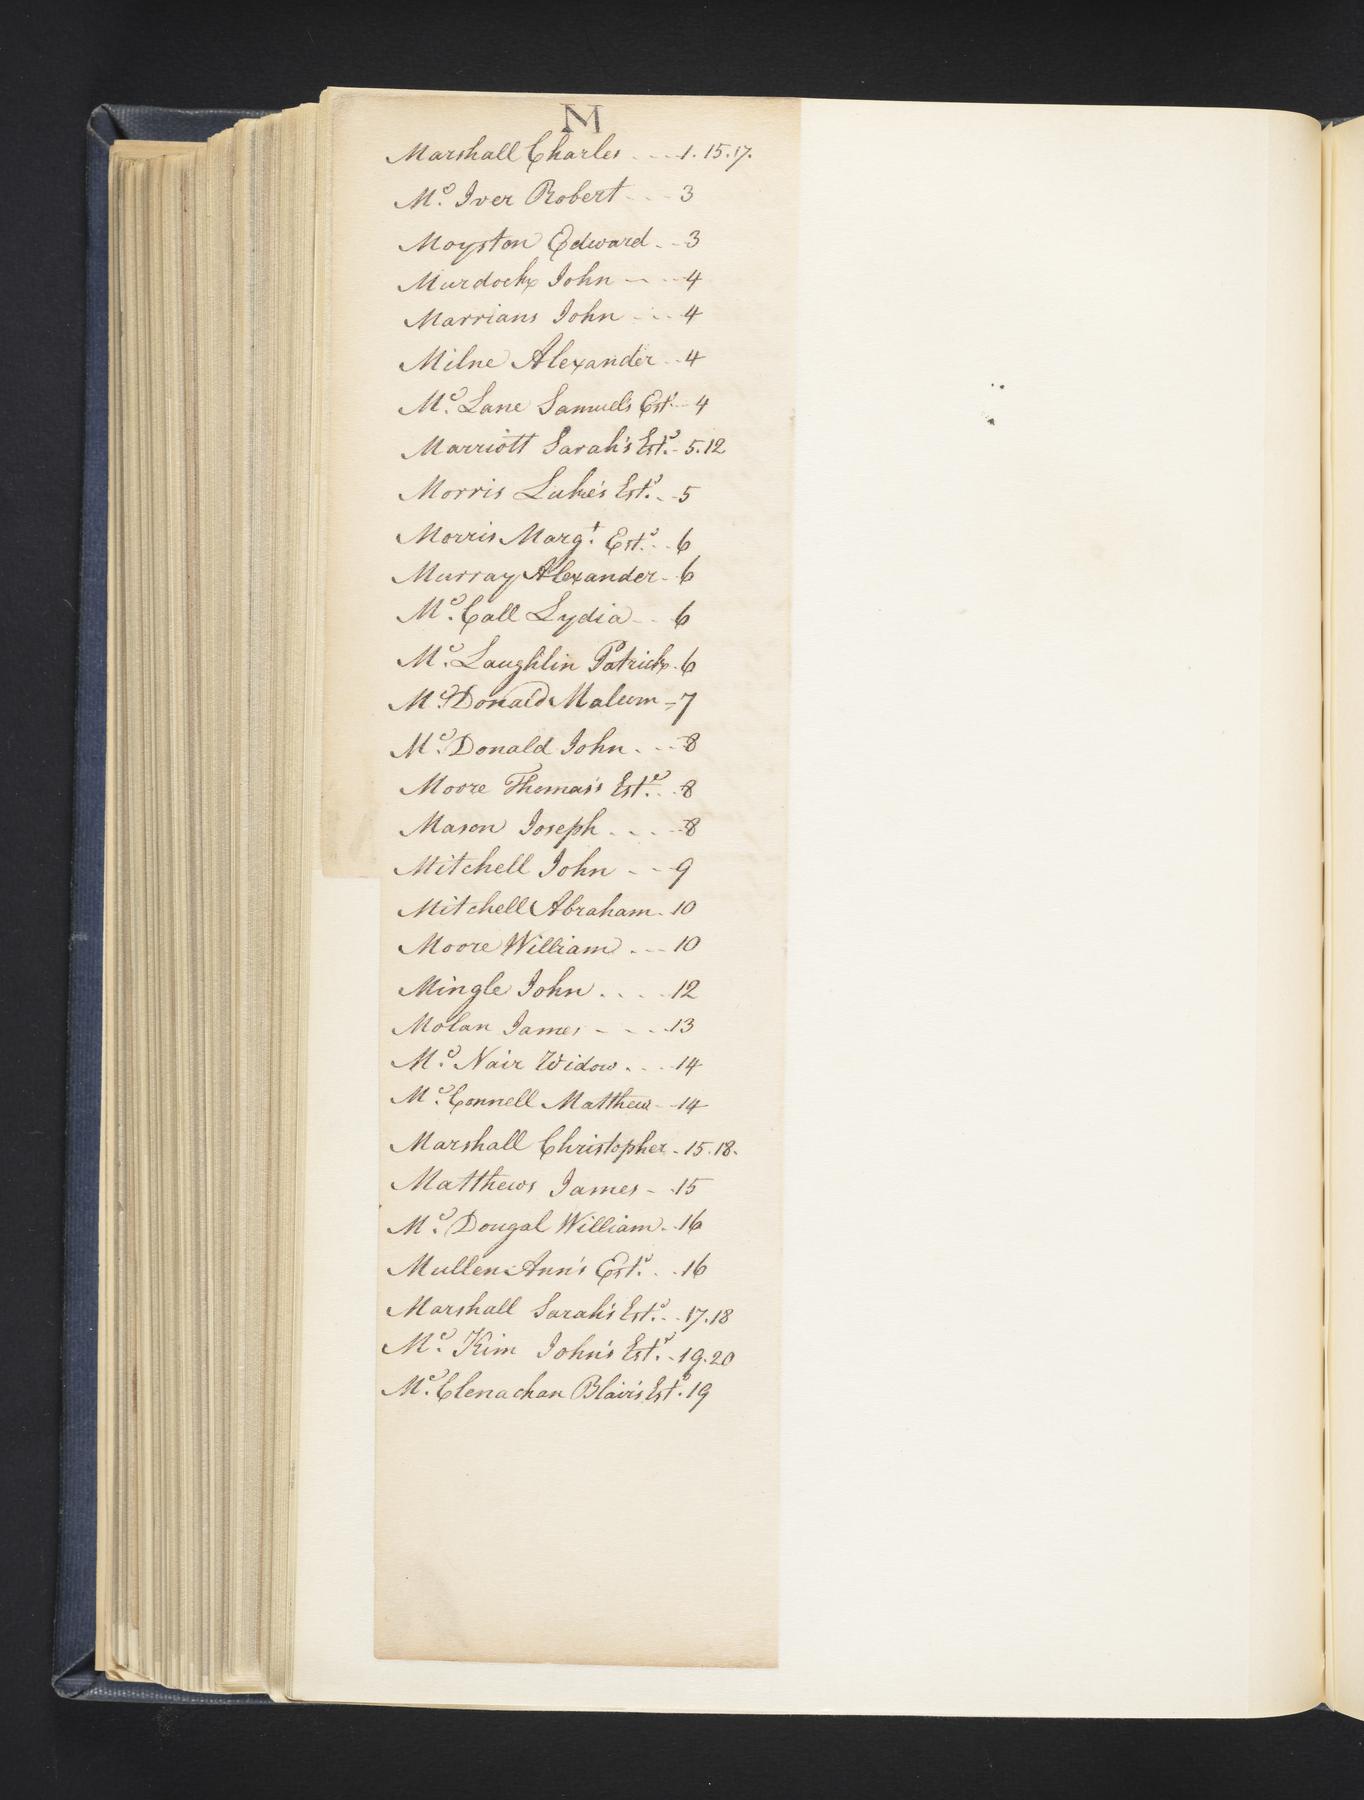 M
Marshall Charles - - - 1. 15. 17.
Mc. Iver Robert - - - 3
Moyston Edward - - 3
Murdock John - - - 4
Marrians John - - - 4
Milne Alexander - - 4
Mc. Lane Samuel's Este. - 4
Marriott Sarah's Este. - 5. 12
Morris Luke's Este. - - 5
Morris Margt. Este. - - 6
Murray Alexander - 6
Mc. Call Lydia - - 6
Mc. Laughlin Patrick - 6
Mc. Donald Malcum - 7
Mc. Donald John - - - 8
Moore Thomas's Este. - - 8
Mason Joseph - - - - 8
Mitchell John - - - 9
Mitchell Abraham - 10
Moore William - - - 10
Mingle John - - - - 12
Molan James - - - - 13
Mc. Nair Widow - - - 14
Mc. Connell Matthew - - 14
Marshall Christopher - 15. 18.
Matthews James - - 15
Mc. Dougal William - - 16
Mullen Ann's Este. - - 16
Marshall Sarah's Este. - - 17. 18
Mc. Kim John's Este. - 19. 20
Mc. Clenachan Blair's Este. 19